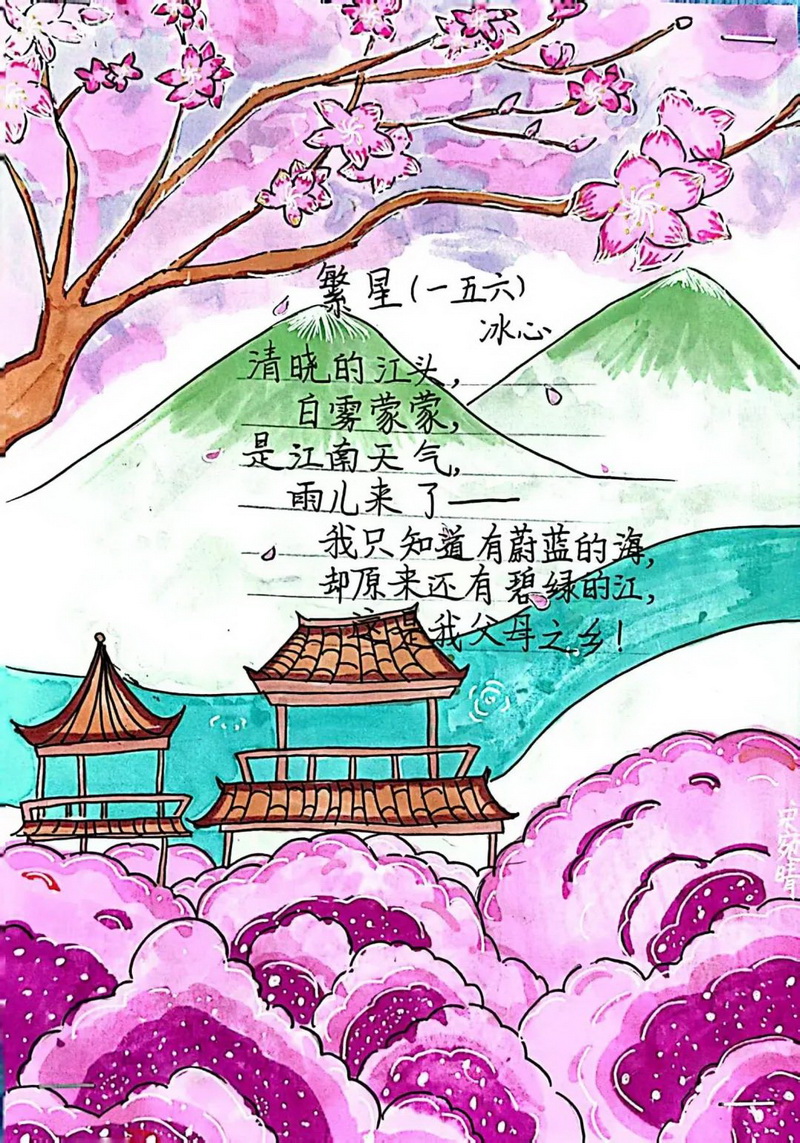 繁星(一五六)
冰心
清晓的江头,
白雾蒙蒙,
是江南天气,
雨儿来了——
我只知道有蔚蓝的海,
却原来还有碧绿的江,
这是我父母之乡!
宋宛晴